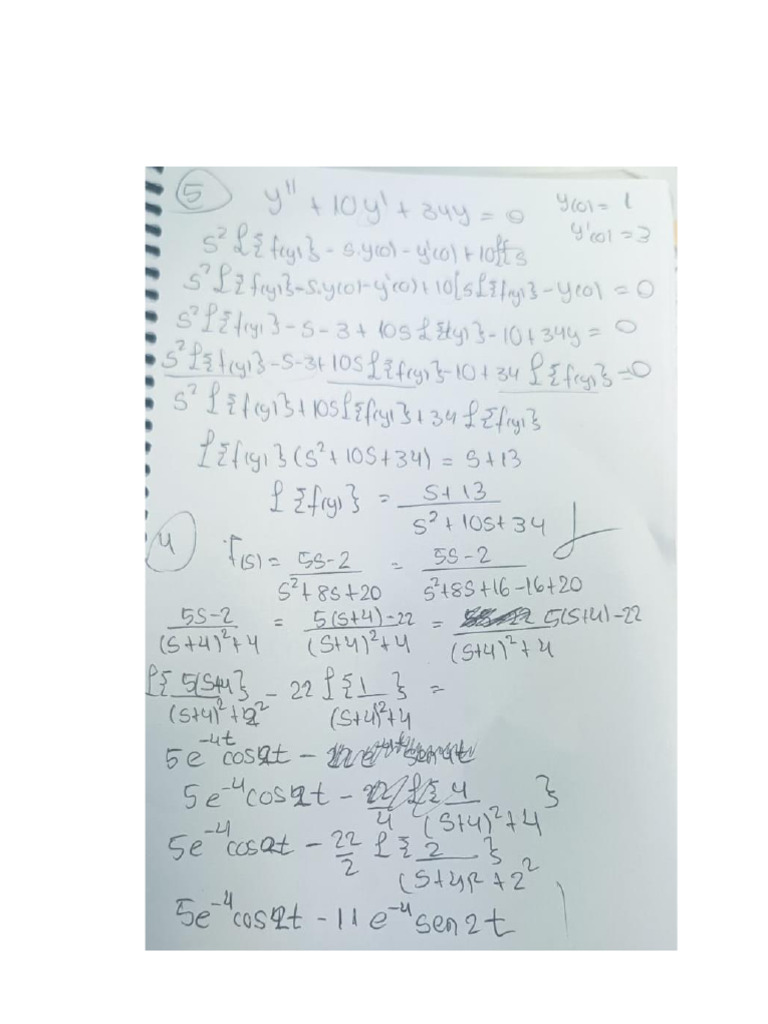 5 y'' + 10y' + 34y = 0 y(0) = 1
y'(0) = 3
s² ℒ{f(y)} - s.y(0) - y'(0) + 10
s² ℒ{f(y)} - s.y(0) - y'(0) + 10[sℒ{f(y)} - y(0) = 0
s² ℒ{f(y)} - s - 3 + 10s ℒ{f(y)} - 10 + 34y = 0
s² ℒ{f(y)} - s - 3 + 10s ℒ{f(y)} - 10 + 34 ℒ{f(y)} = 0
s² ℒ{f(y)} + 10s ℒ{f(y)} + 34 ℒ{f(y)}
ℒ{f(y)} (s² + 10s + 34) = s + 13
ℒ{f(y)} = s + 13 / s² + 10s + 34
4 F(s) = 5s - 2 / s² + 8s + 20 = 5s - 2 / s² + 8s + 16 - 16 + 20
5s - 2 / (s+4)² + 4 = 5(s+4) - 22 / (s+4)² + 4 = 5(s+4) - 22 / (s+4)² + 4
ℒ{5(s+4)} / (s+4)² + 2² - 22 ℒ{1 / (s+4)² + 4} =
5e^-4t cos2t -
5e^-4 cos2t - 22/4 ℒ{4 / (s+4)² + 4}
5e^-4 cos2t - 22/2 ℒ{2 / (s+4)² + 2²}
5e^-4 cos2t - 11e^-4 sen2t